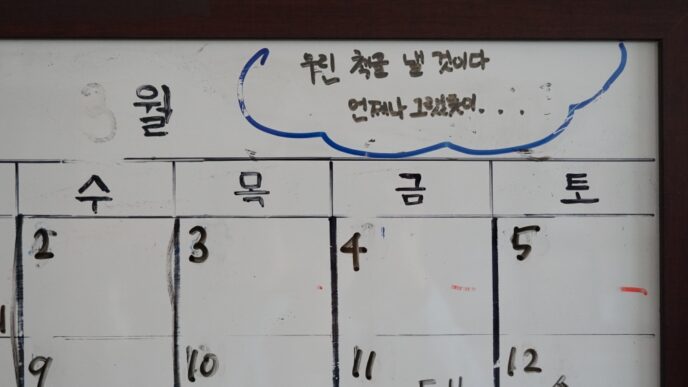 우린 책을 낼 것이다
언제나 그랬듯이....
3월
수 목 금 토
2 3 4 5
9 10 11 12